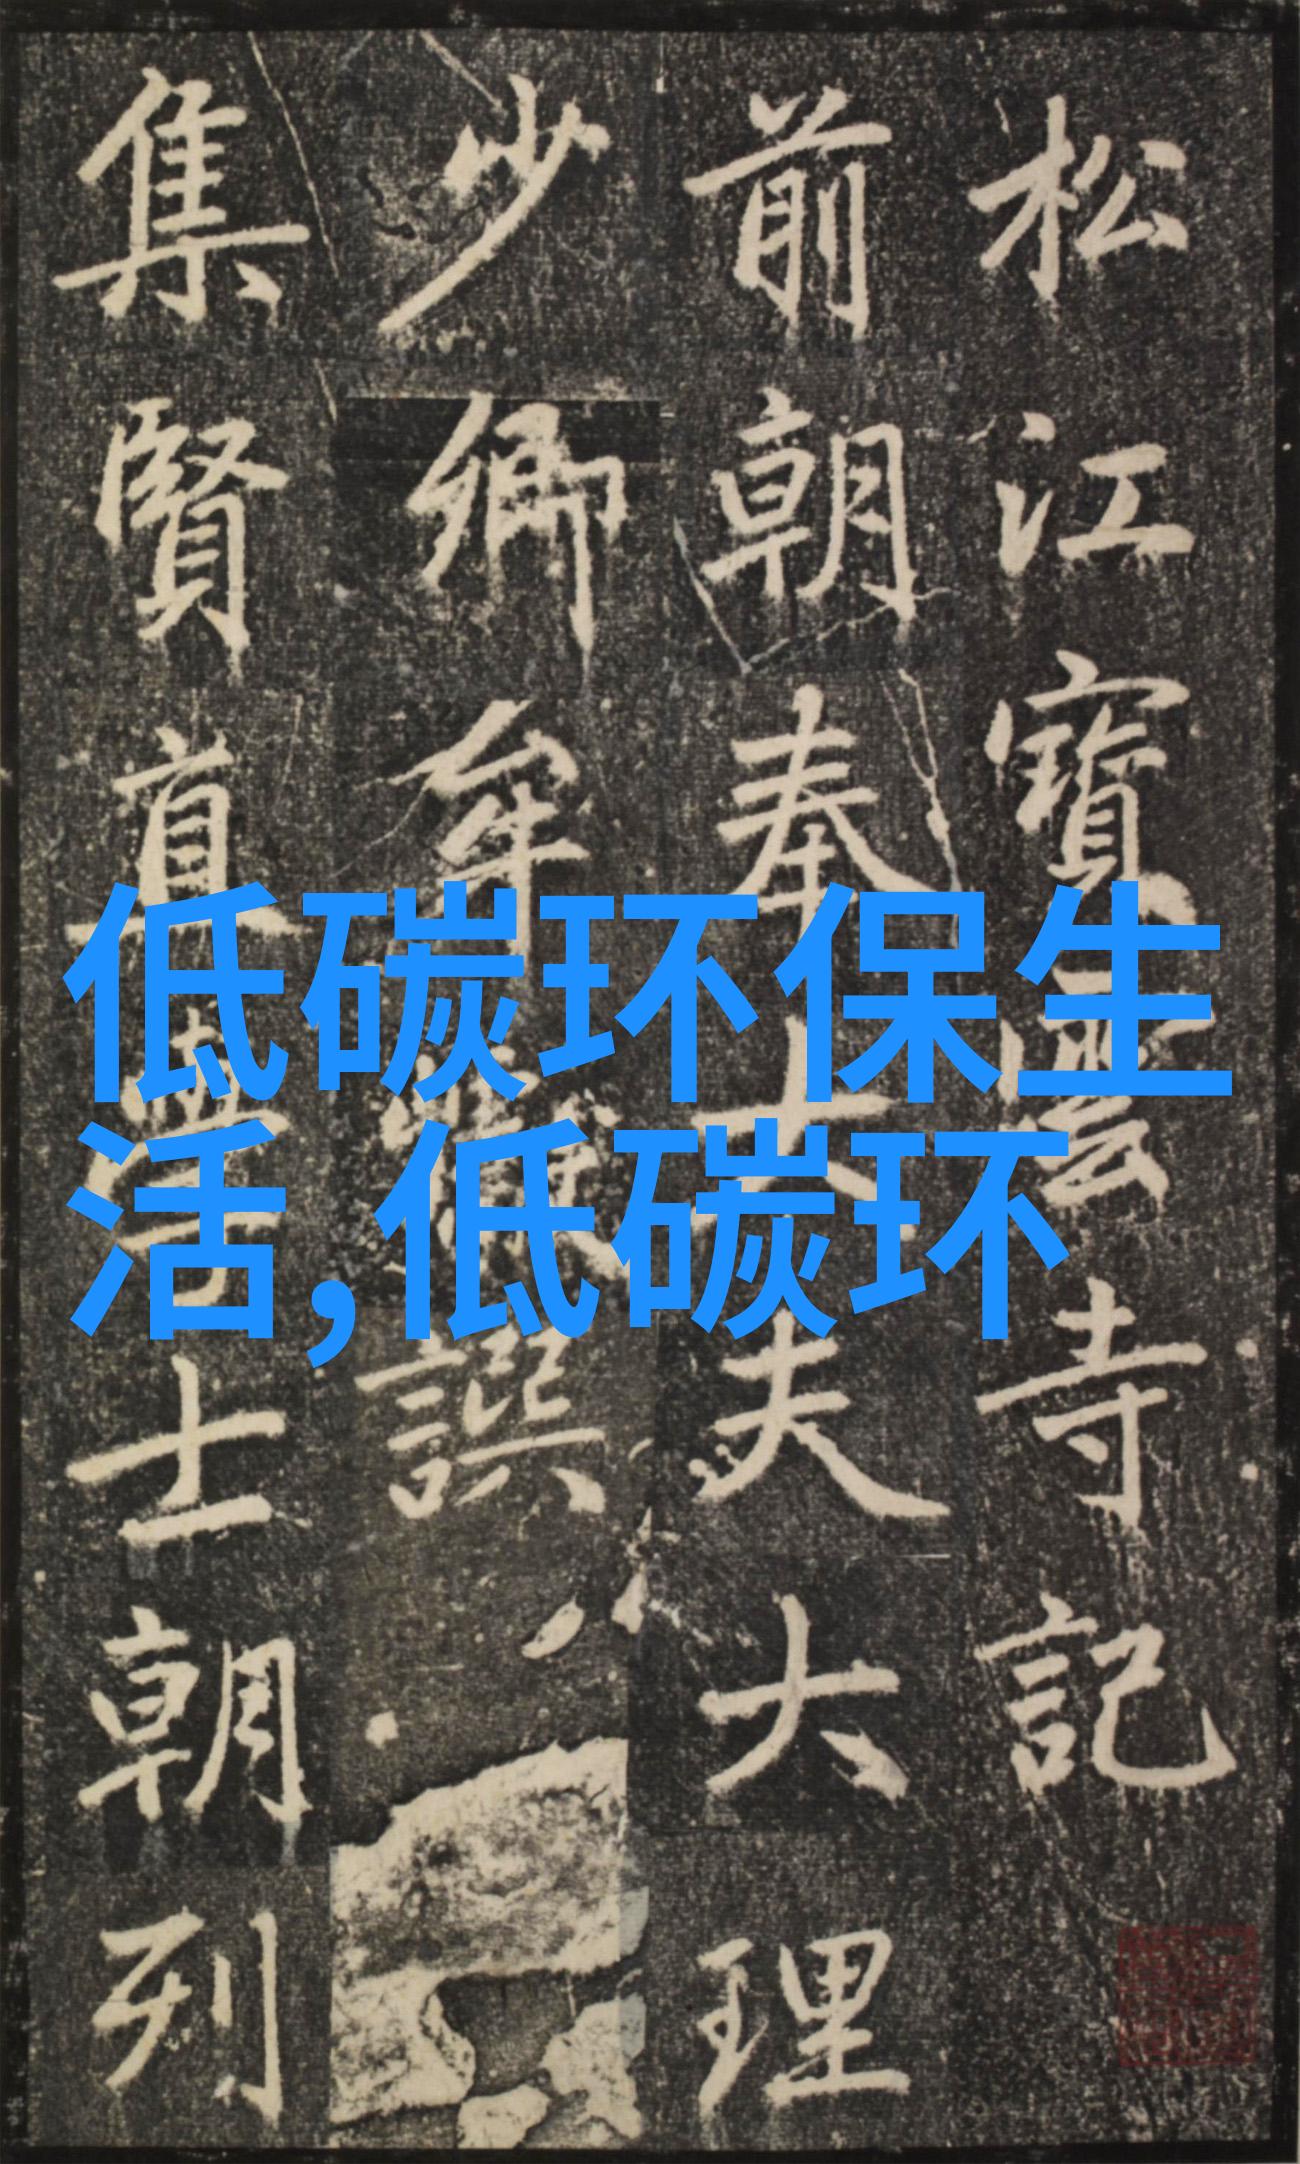 松江寶雲寺記
前朝奉大夫大理
少卿牟譔
集賢直學士朝列
低碳环保生
活,低碳环